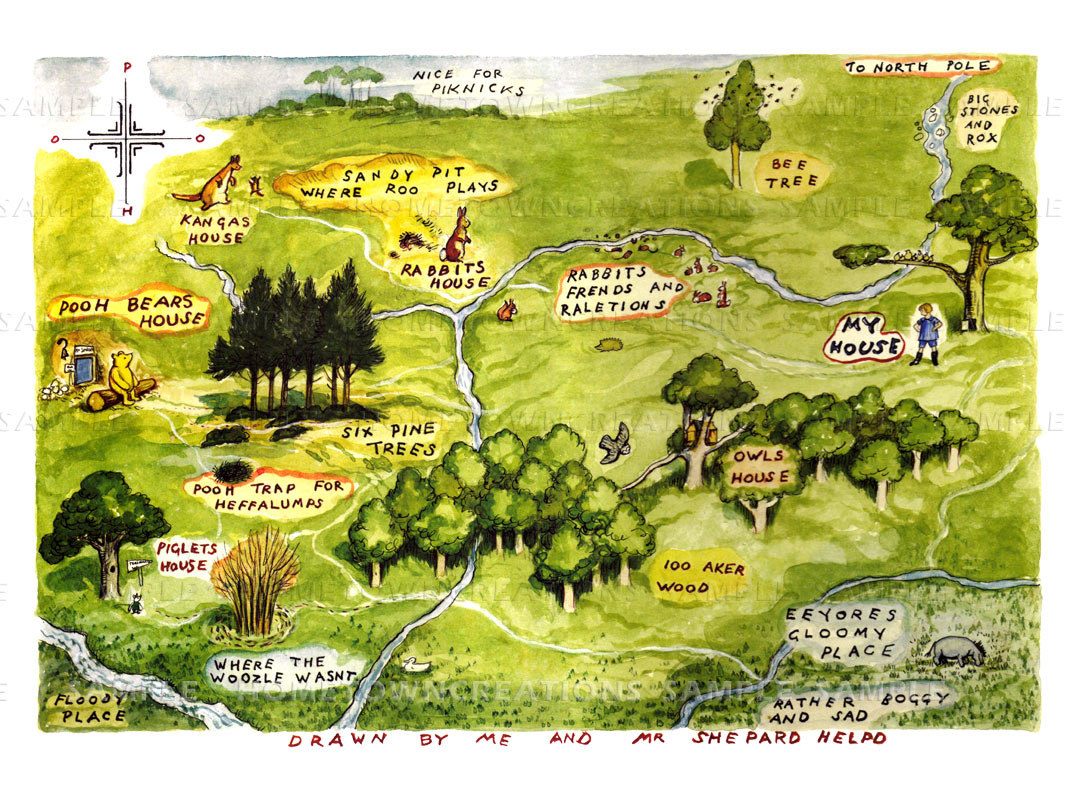 P
O O
H
NICE FOR
PIKNICKS
TO NORTH POLE
BIG
STONES
AND
ROX
BEE
TREE
SANDY PIT
WHERE ROO PLAYS
KANGAS
HOUSE
RABBITS
HOUSE
RABBITS
FRENDS AND
RALETIONS
POOH BEARS
HOUSE
MY
HOUSE
SIX PINE
TREES
OWLS
HOUSE
POOH TRAP FOR
HEFFALUMPS
PIGLETS
HOUSE
100 AKER
WOOD
EEYORES
GLOOMY
PLACE
WHERE THE
WOOZLE WASNT
FLOODY
PLACE
RATHER BOGGY
AND SAD
DRAWN BY ME AND MR SHEPARD HELPD
SAMPLE HOMETOWNCREATIONS SAMPLE